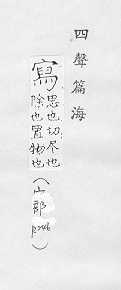 四聲篇海
寫
思也切尽也
除也置物也
(宀部
p246)